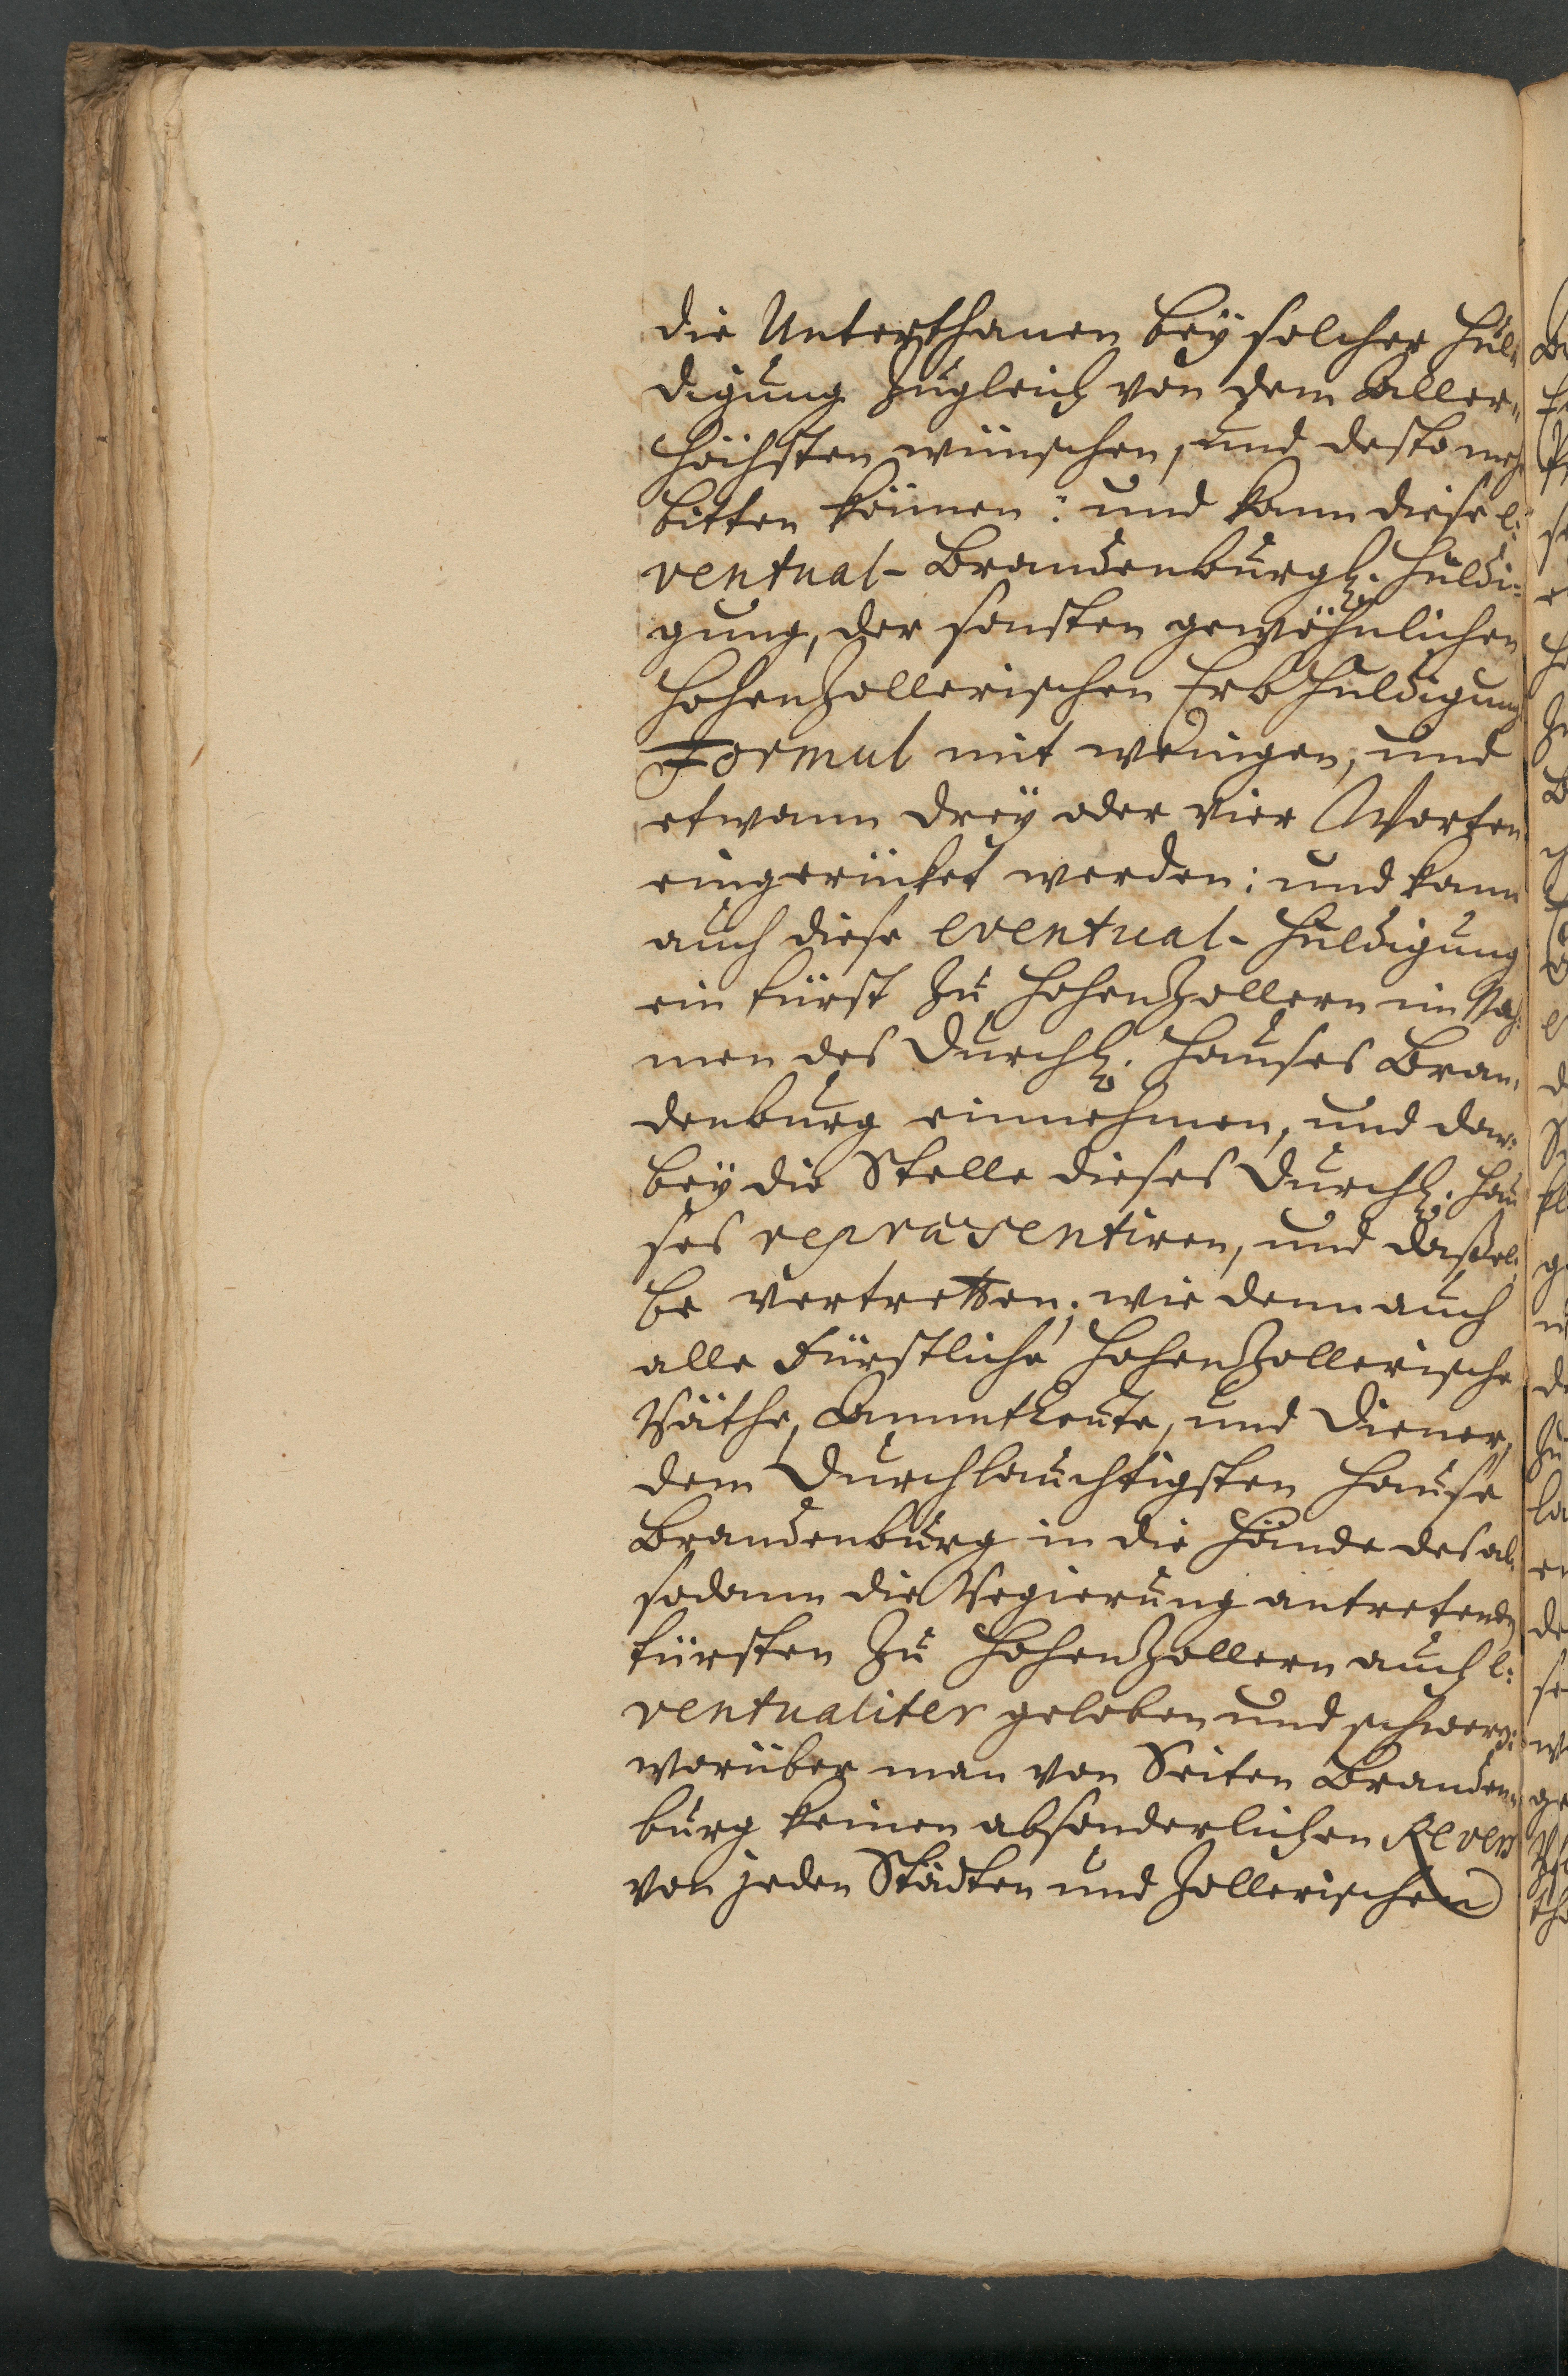 die Unterthanen bey solcher Hul-
digung zugleich von dem Aller-
höchsten wünschen, und desto mehr
bitten können: und kann diese e-
ventual-Brandenburgl. Huldi-
gung, der sonsten gewöhnlichen
HohenZollerischen ErbHuldigung
Formul mit wenigen, und
etwann drey oder vier Worten
eingerücket werden; und kann
auch diese eventual-Huldigung
ein Fürst zu HohenZollern im Nah-
men des Durchl. Hauses Bran-
denburg einnehmen, und dar-
bey die Stelle dieses Durchl. Hau
ses repræsentiren, und daßel-
be vertretten; wie dann auch
alle Fürstliche HohenZollerische
Räthe, Ammtleute, und Diener,
dem Durchlauchtigsten Hause
Brandenburg in die Hände des al-
sodann die Regierung antretenden
Fürsten zu HohenZollern auch e-
ventualiter geloben und schweren:
worüber man von Seiten Branden-
burg keinen absonderlichen Revers
von jeden Städten und Zollerischen